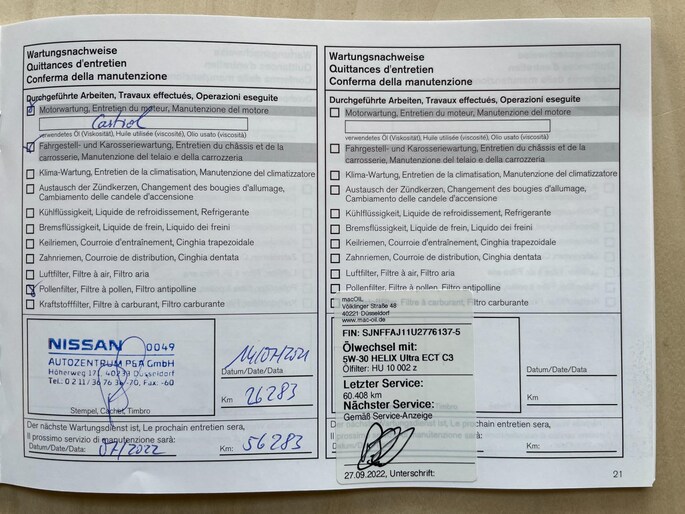 Wartungsnachweise
Quittances d'entretien
Conferma della manutenzione
Durchgeführte Arbeiten, Travaux effectués, Operazioni eseguite
Motorwartung, Entretien du moteur, Manutenzione del motore
Castrol
verwendetes Öl (Viskosität), Huile utilisée (viscosité), Olio usato (viscosità)
Fahrgestell- und Karosseriewartung, Entretien du châssis et de la
carrosserie, Manutenzione del telaio e della carrozzeria
Klima-Wartung, Entretien de la climatisation, Manutenzione del climatizzatore
Austausch der Zündkerzen, Changement des bougies d'allumage,
Cambiamento delle candele d'accensione
Kühlflüssigkeit, Liquide de refroidissement, Refrigerante
Bremsflüssigkeit, Liquide de frein, Liquido dei freini
Keilriemen, Courroie d'entraînement, Cinghia trapezoidale
Zahnriemen, Courroie de distribution, Cinghia dentata
Luftfilter, Filtre à air, Filtro aria
Pollenfilter, Filtre à pollen, Filtro antipolline
Kraftstofffilter, Filtre à carburant, Filtro carburante
NISSAN 0049
AUTOZENTRUM P&A GmbH
Höherweg 171, 40233 Düsseldorf
Tel. 0211/367636-70, Fax: -60
Stempel, Cachet, Timbro
14/07/2021
Datum/Date/Data
Km: 26283
Der nächste Wartungsdienst ist, Le prochain entretien sera,
Il prossimo servizio di manutenzione sarà:
Datum/Date/Data: 07/2022 Km: 56283
Wartungsnachweise
Quittances d'entretien
Conferma della manutenzione
Durchgeführte Arbeiten, Travaux effectués, Operazioni eseguite
Motorwartung, Entretien du moteur, Manutenzione del motore
verwendetes Öl (Viskosität), Huile utilisée (viscosité), Olio usato (viscosità)
Fahrgestell- und Karosseriewartung, Entretien du châssis et de la
carrosserie, Manutenzione del telaio e della carrozzeria
Klima-Wartung, Entretien de la climatisation, Manutenzione del climatizzatore
Austausch der Zündkerzen, Changement des bougies d'allumage,
Cambiamento delle candele d'accensione
Kühlflüssigkeit, Liquide de refroidissement, Refrigerante
Bremsflüssigkeit, Liquide de frein, Liquido dei freini
Keilriemen, Courroie d'entraînement, Cinghia trapezoidale
Zahnriemen, Courroie de distribution, Cinghia dentata
Luftfilter, Filtre à air, Filtro aria
Pollenfilter, Filtre à pollen, Filtro antipolline
Filtre à carburant, Filtro carburante
macOIL
Völklinger Straße 48
40221 Düsseldorf
www.mac-oil.de
FIN: SJNFFAJ11U2776137-5
Ölwechsel mit:
5W-30 HELIX Ultra ECT C3
Ölfilter: HU 10 002 z
Letzter Service:
60.408 km
Nächster Service:
Gemäß Service-Anzeige
27.09.2022, Unterschrift:
Timbro
Datum/Date/Data
Km:
Der nächste Wartungsdienst ist, Le prochain entretien sera,
manutenzione sarà:
Km:
21